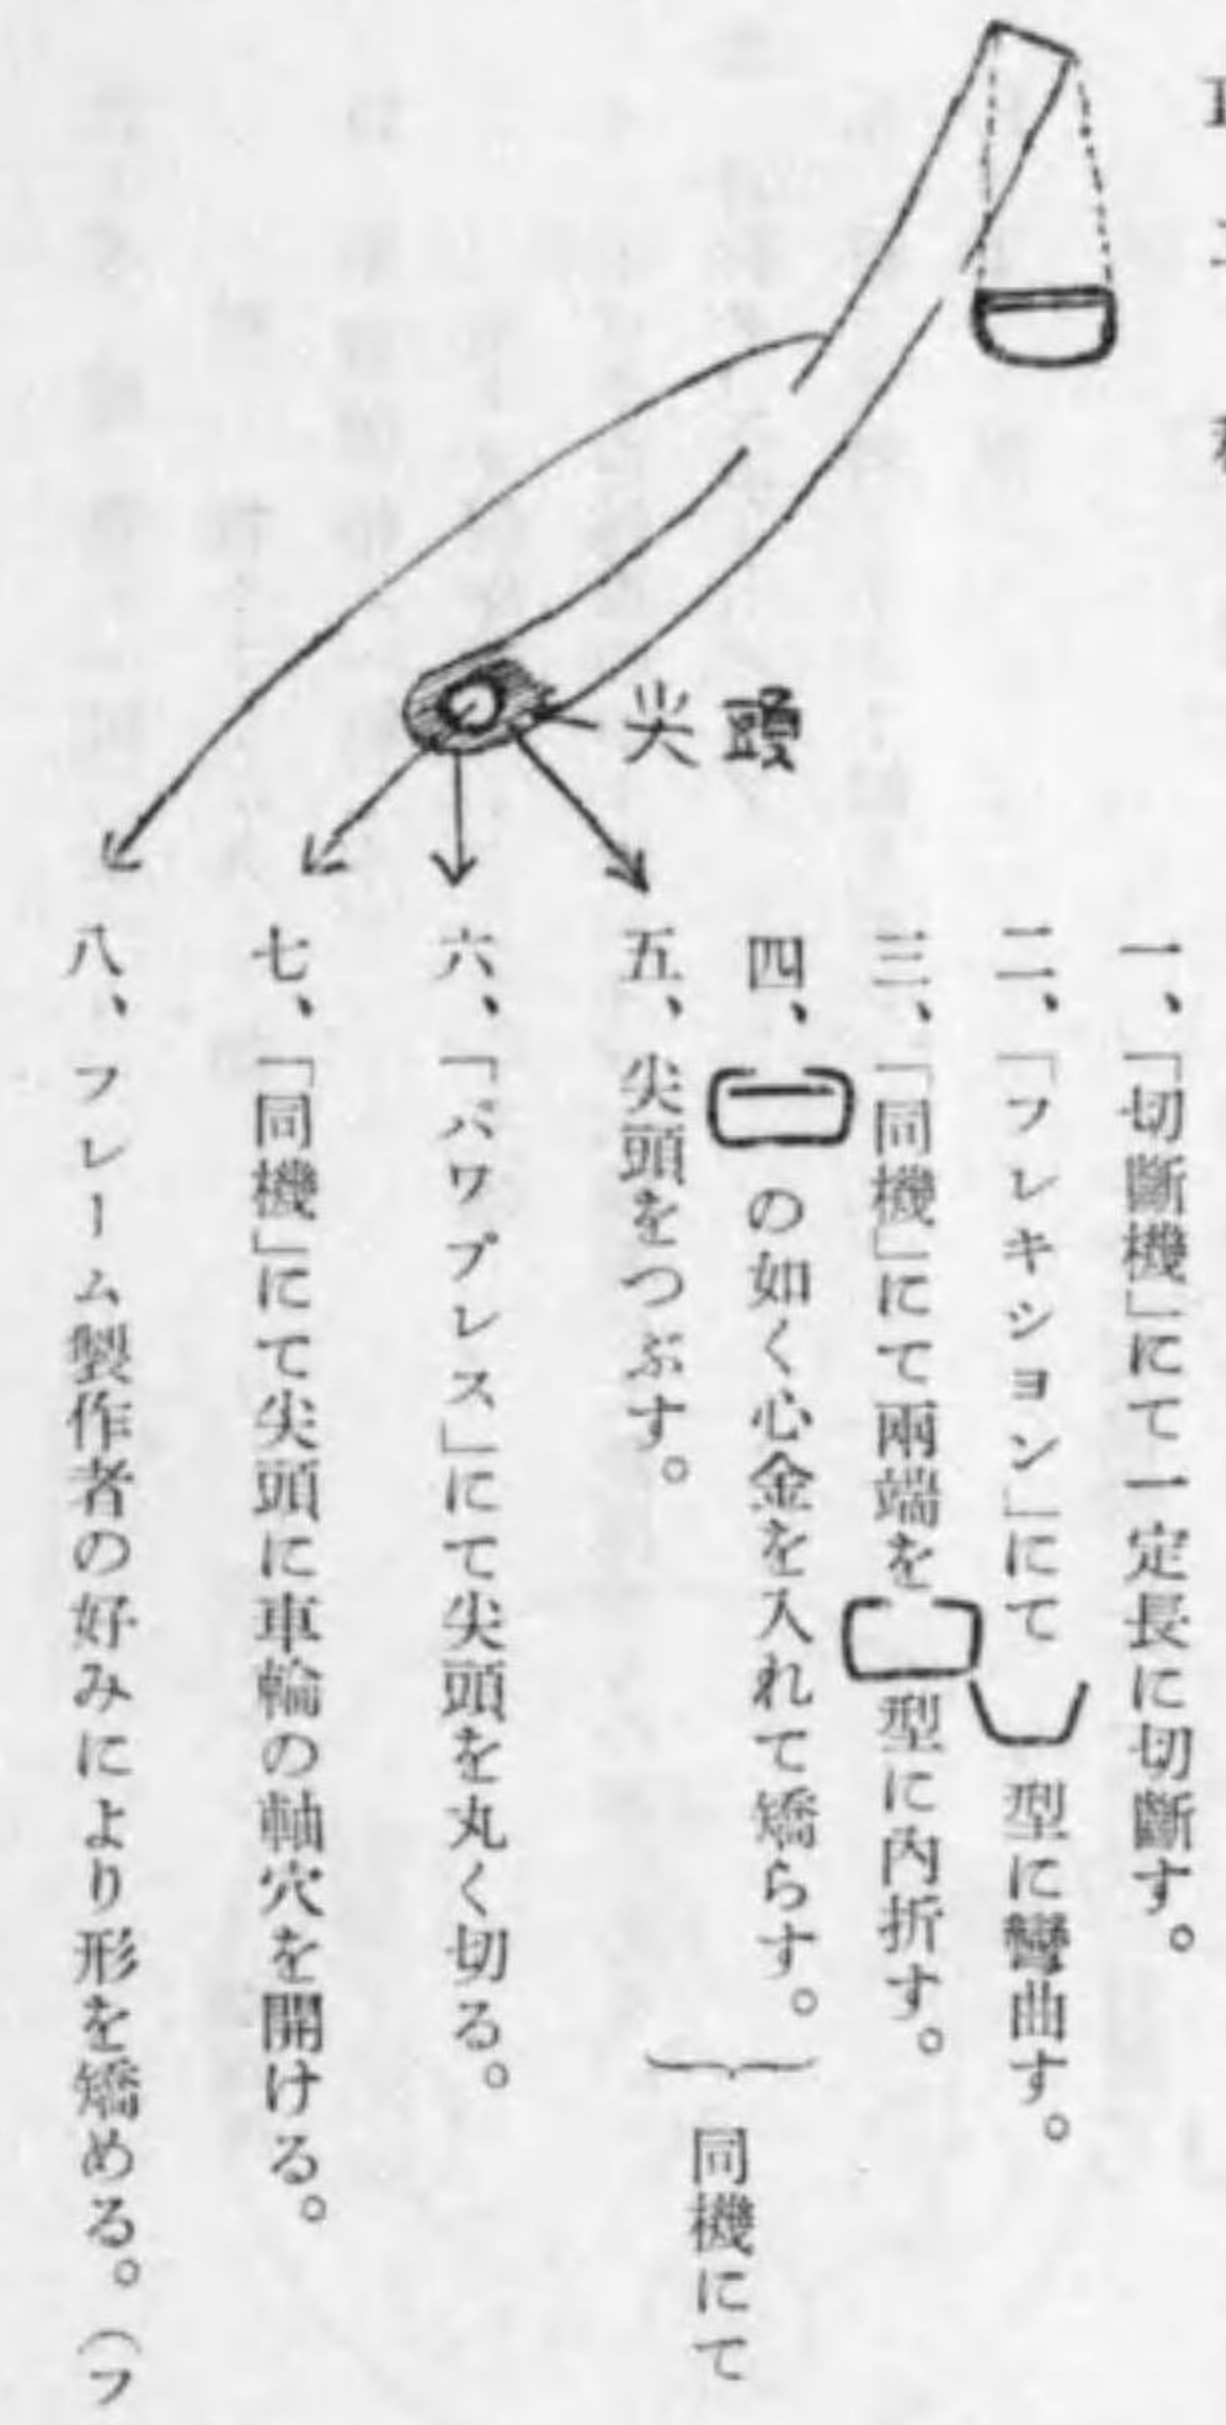 尖頭
一、「切斷機」にて一定長に切斷す。
二、「フレキション」にて型に彎曲す。
三、「同機」にて兩端を型に內折す。
四、の如く心金を入れて矯らす。
五、尖頭をつぶす。
同機にて
六、「パワプレス」にて尖頭を丸く切る。
七、「同機」にて尖頭に車輪の軸穴を開ける。
八、フレーム製作者の好みにより形を矯める。(フ